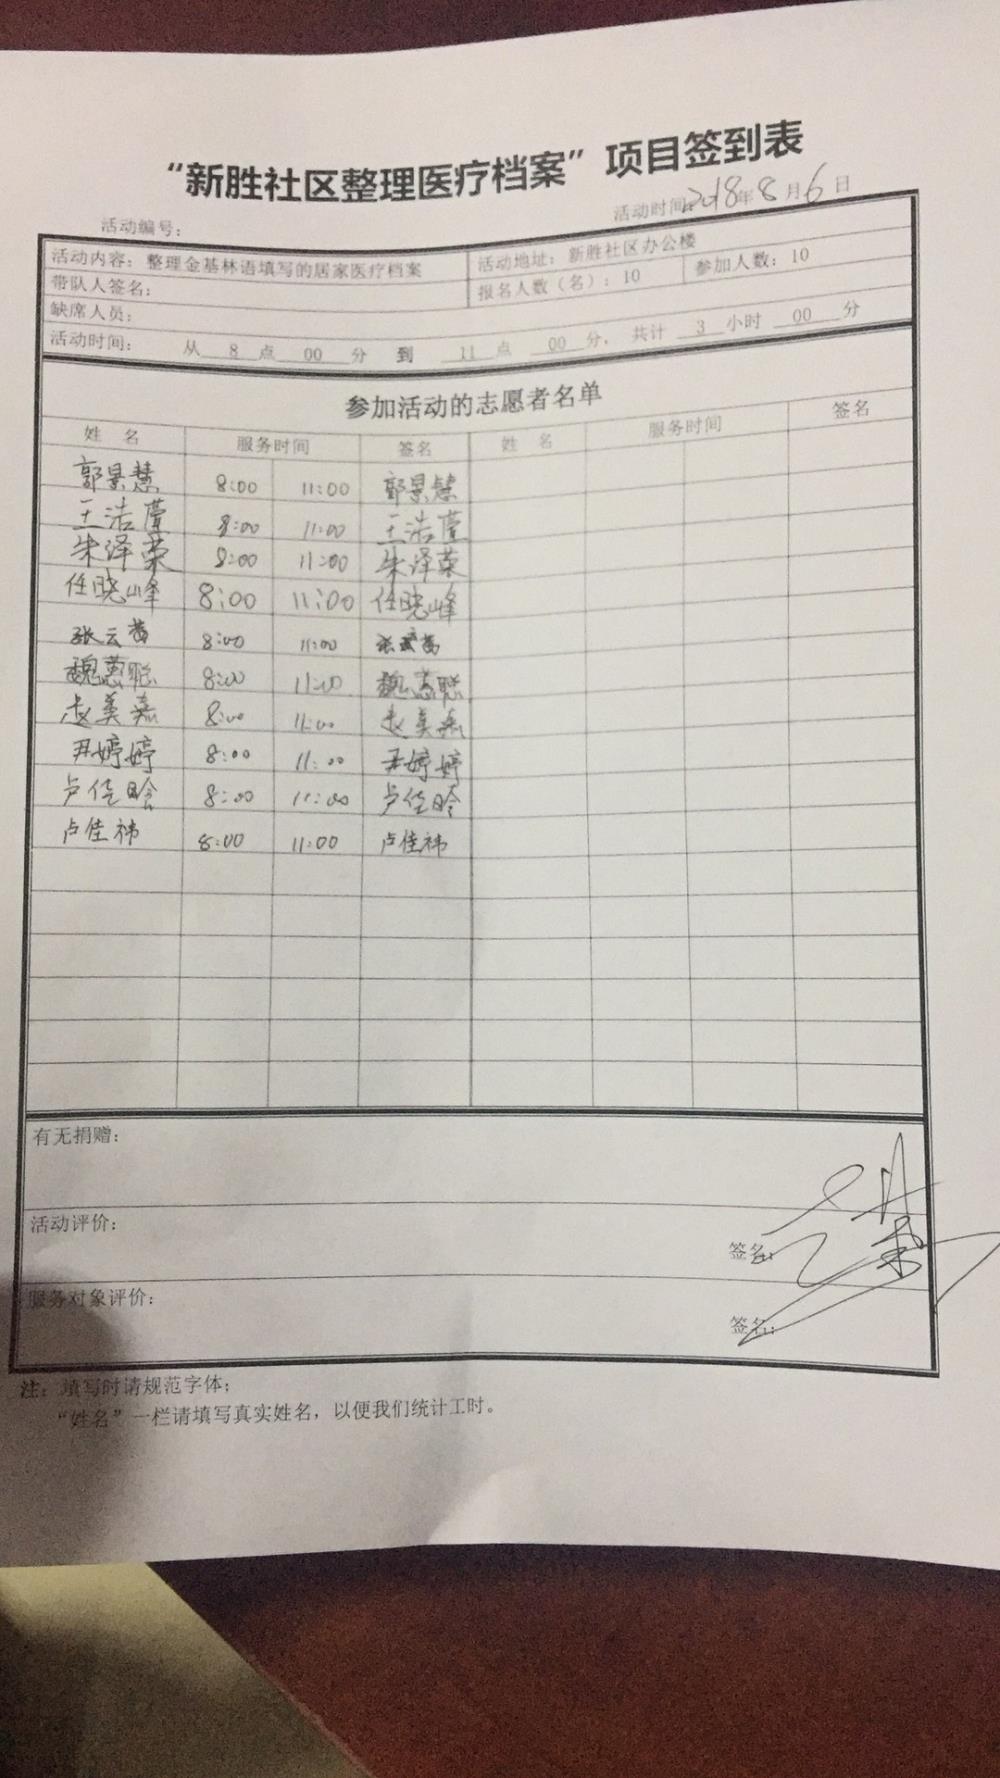 “新胜社区整理医疗档案”项目签到表
活动编号： 活动时间：2018年8月6日
活动内容：整理金基林语填写的居家医疗档案 活动地址：新胜社区办公楼
带队人签名： 报名人数（名）：10 参加人数：10
缺席人员：
活动时间： 从 8 点 00 分 到 11 点 00 分， 共计 3 小时 00 分
参加活动的志愿者名单
姓 名 服务时间 签名 姓 名 服务时间 签名
郭景慧 8:00 11:00 郭景慧
王浩莹 8:00 11:00 王浩莹
朱泽荣 8:00 11:00 朱泽荣
任晓峰 8:00 11:00 任晓峰
张云茜 8:00 11:00
魏蕙聪 8:00 11:00 魏蕙聪
赵美嘉 8:00 11:00 赵美嘉
尹婷婷 8:00 11:00 尹婷婷
卢佳晗 8:00 11:00 卢佳晗
卢佳祎 8:00 11:00 卢佳祎
有无捐赠：
活动评价：
签名：
服务对象评价：
签名：
注：填写时请规范字体；
“姓名”一栏请填写真实姓名，以便我们统计工时。